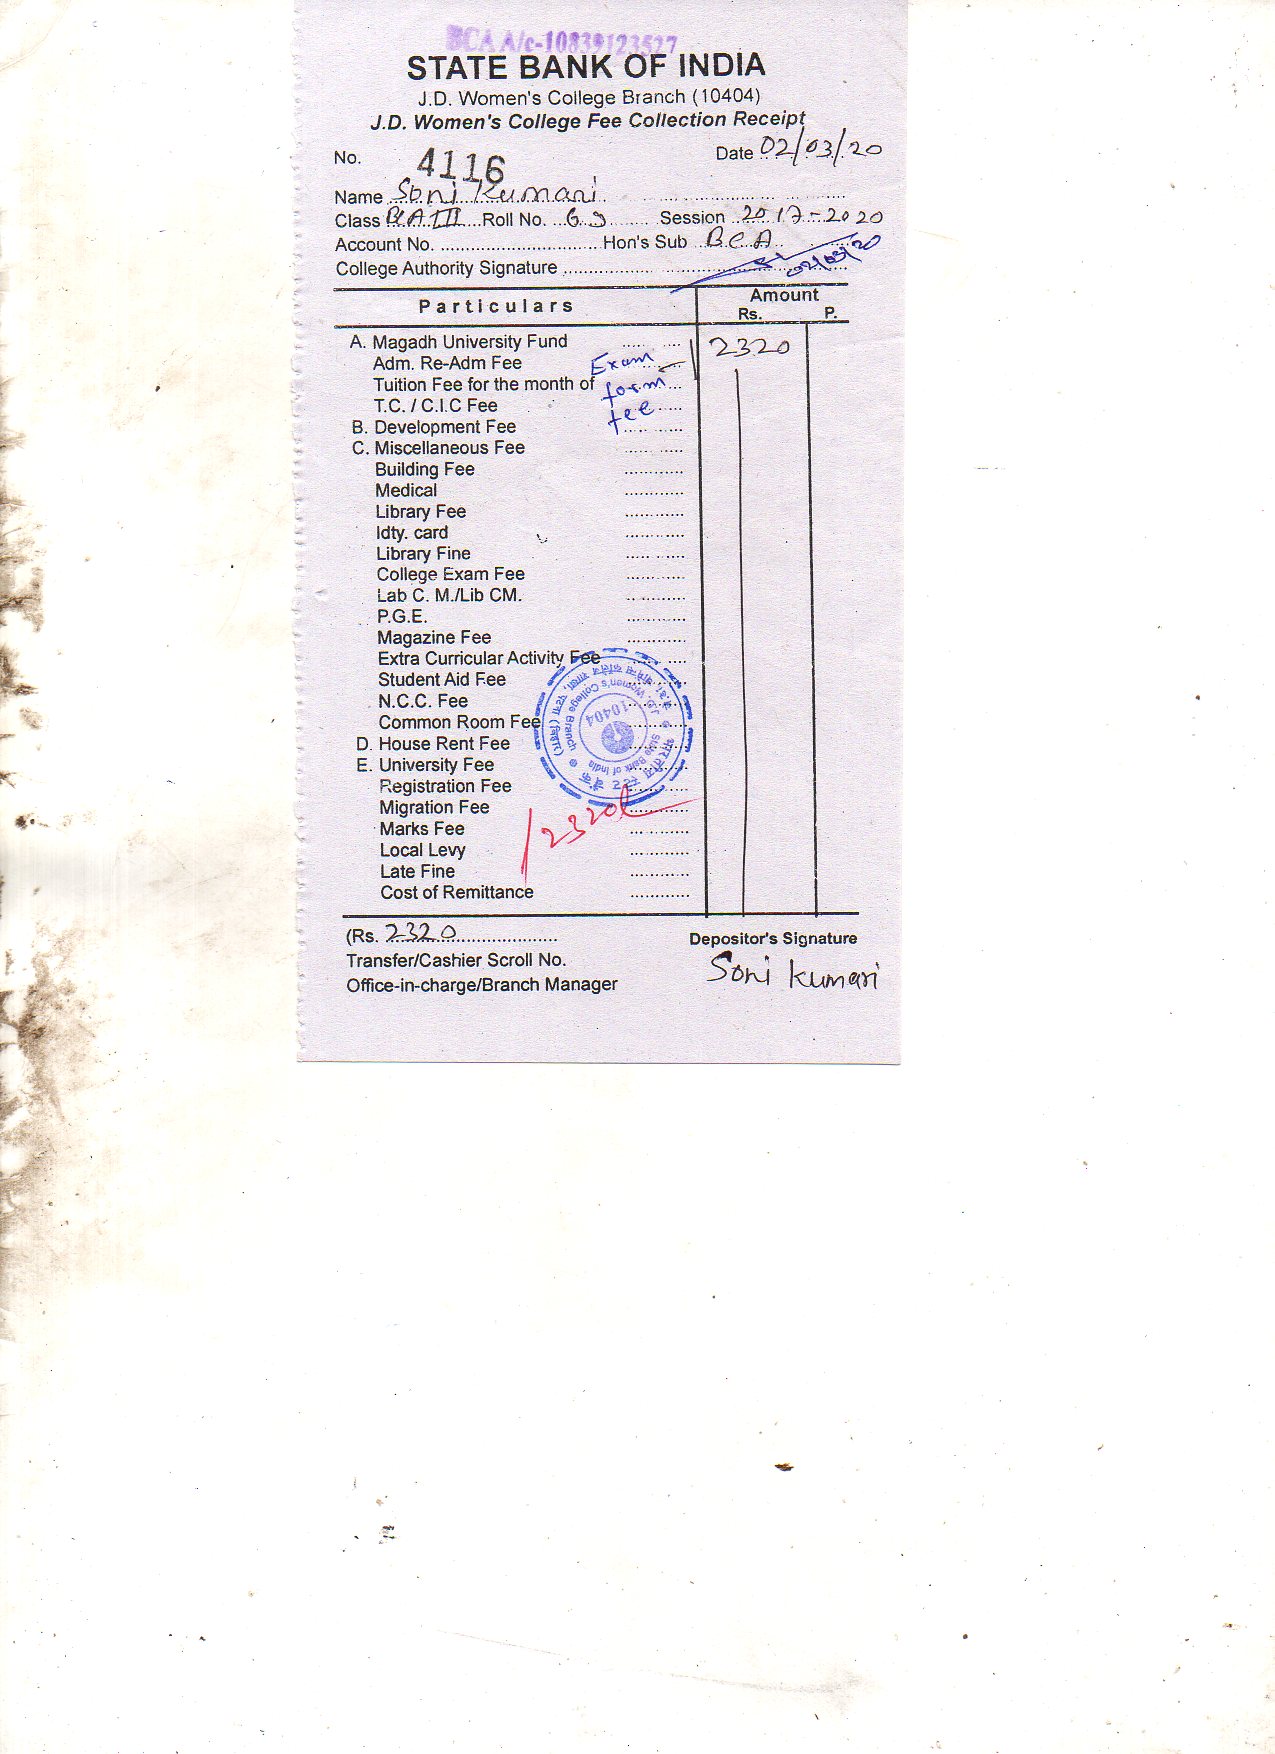 BCA A/c-10839123527
STATE BANK OF INDIA
J.D. Women's College Branch (10404)
J.D. Women's College Fee Collection Receipt
No. 4116 Date 02/03/20
Name Soni Kumari
Class BCA III Roll No. 63 Session 2017-2020
Account No. Hon's Sub BCA
College Authority Signature 02/03/20
Particulars Amount
Rs. P.
A. Magadh University Fund 2320
Adm. Re-Adm Fee Exam
Tuition Fee for the month of form
T.C. / C.I.C Fee fee
B. Development Fee
C. Miscellaneous Fee
Building Fee
Medical
Library Fee
Idty. card
Library Fine
College Exam Fee
Lab C. M./Lib CM.
P.G.E.
Magazine Fee
Extra Curricular Activity Fee
Student Aid Fee
N.C.C. Fee
Common Room Fee
D. House Rent Fee
E. University Fee
Registration Fee
Migration Fee
Marks Fee
Local Levy
Late Fine
Cost of Remittance
State Bank of India
J.D. Women's College Branch
10404
2320
(Rs. 2320 Depositor's Signature
Transfer/Cashier Scroll No. Soni Kumari
Office-in-charge/Branch Manager